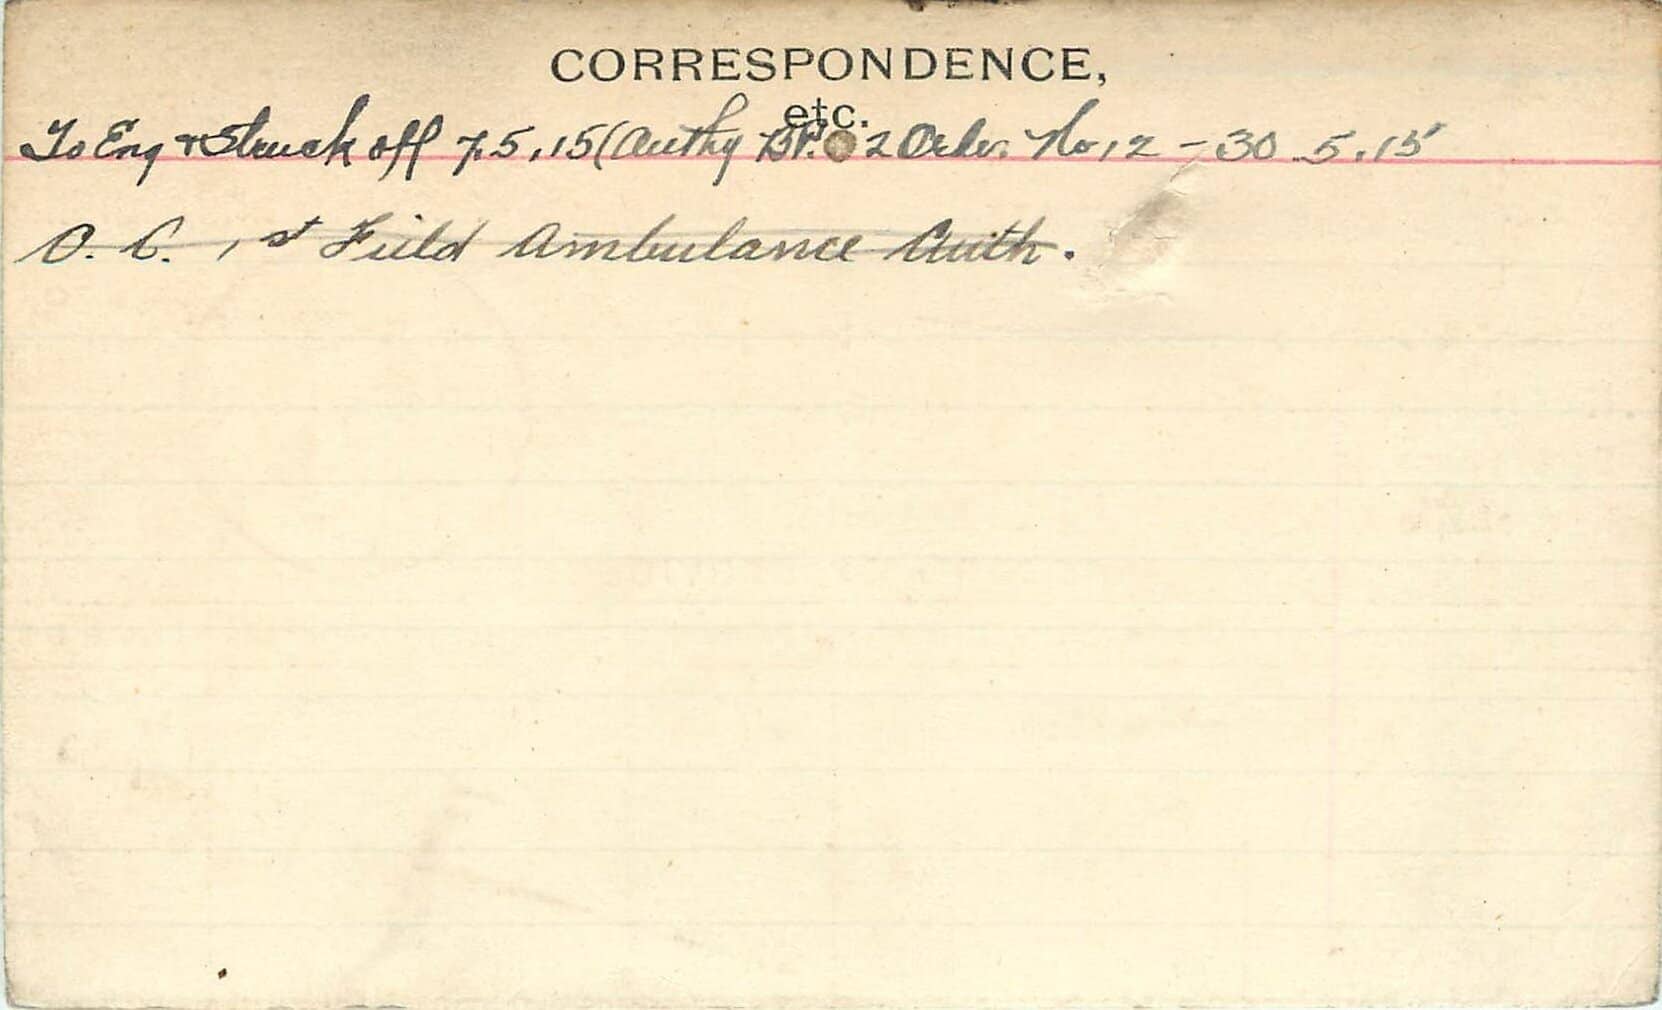 CORRESPONDENCE,
etc.
To Eng & Struck off 7.5.15 (Authy Pt. 2 Order No 12 - 30.5.15
O. C. 1st Field Ambulance Auth.